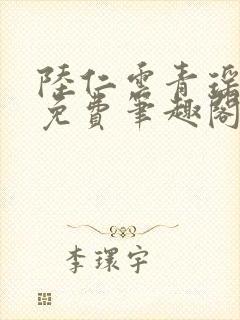 陸仁雲青瑤
免費筆趣閣
李環宇